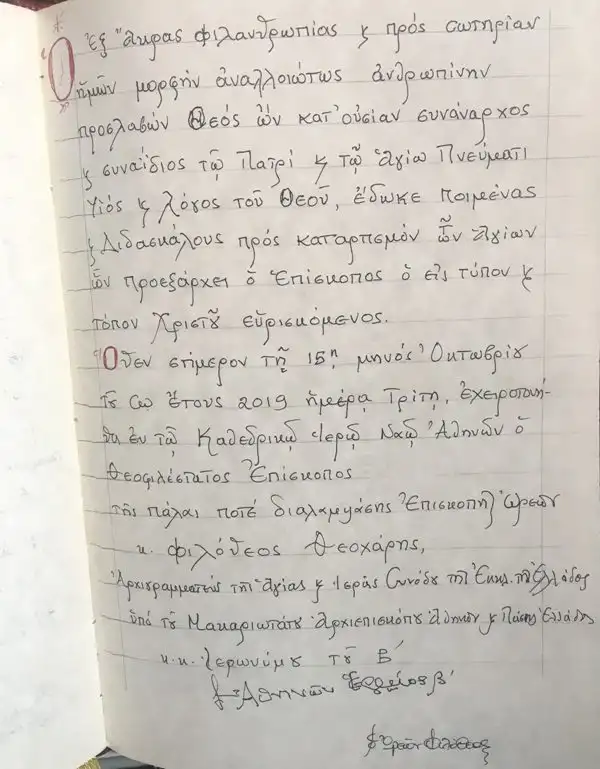 Ὁ ἐξ ἄκρας φιλανθρωπίας ϗ πρός σωτηρίαν
ἡμῶν μορφήν ἀναλλοιώτως ἀνθρωπίνην
προσλαβών Θεός ὤν κατ' οὐσίαν συνάναρχος
ϗ συναΐδιος τῷ Πατρί ϗ τῷ ἁγίῳ Πνεύματι
Υἱός ϗ Λόγος τοῦ Θεοῦ, ἔδωκε ποιμένας
ϗ Διδασκάλους πρός καταρτισμόν τῶν ἁγίων
ὧν προεξάρχει ὁ Ἐπίσκοπος ὁ εἰς τύπον ϗ
τόπον Χριστοῦ εὑρισκόμενος.
Ὅθεν σήμερον τῇ 15ῃ μηνός Ὀκτωβρίου
τοῦ ἔτους 2019 ἡμέρᾳ Τρίτῃ, ἐχειροτονή-
θη ἐν τῷ Καθεδρικῷ Ἱερῷ Ναῷ Ἀθηνῶν ὁ
θεοφιλέστατος Ἐπίσκοπος
τῆς πάλαι ποτέ διαλαμψάσης Ἐπισκοπῆς Ὠρεῶν
κ. Φιλόθεος Θεοχάρης,
Ἀρχιγραμματεύς τῆς Ἁγίας ϗ Ἱερᾶς Συνόδου τῆς Ἐκκ. τῆς Ἑλλάδος
ὑπό τοῦ Μακαριωτάτου Ἀρχιεπισκόπου Ἀθηνῶν ϗ Πάσης Ἑλλάδος
κ.κ. Ἱερωνύμου τοῦ Β΄
Ἀθηνῶν Β΄
Ὠρεῶν Φιλόθεος